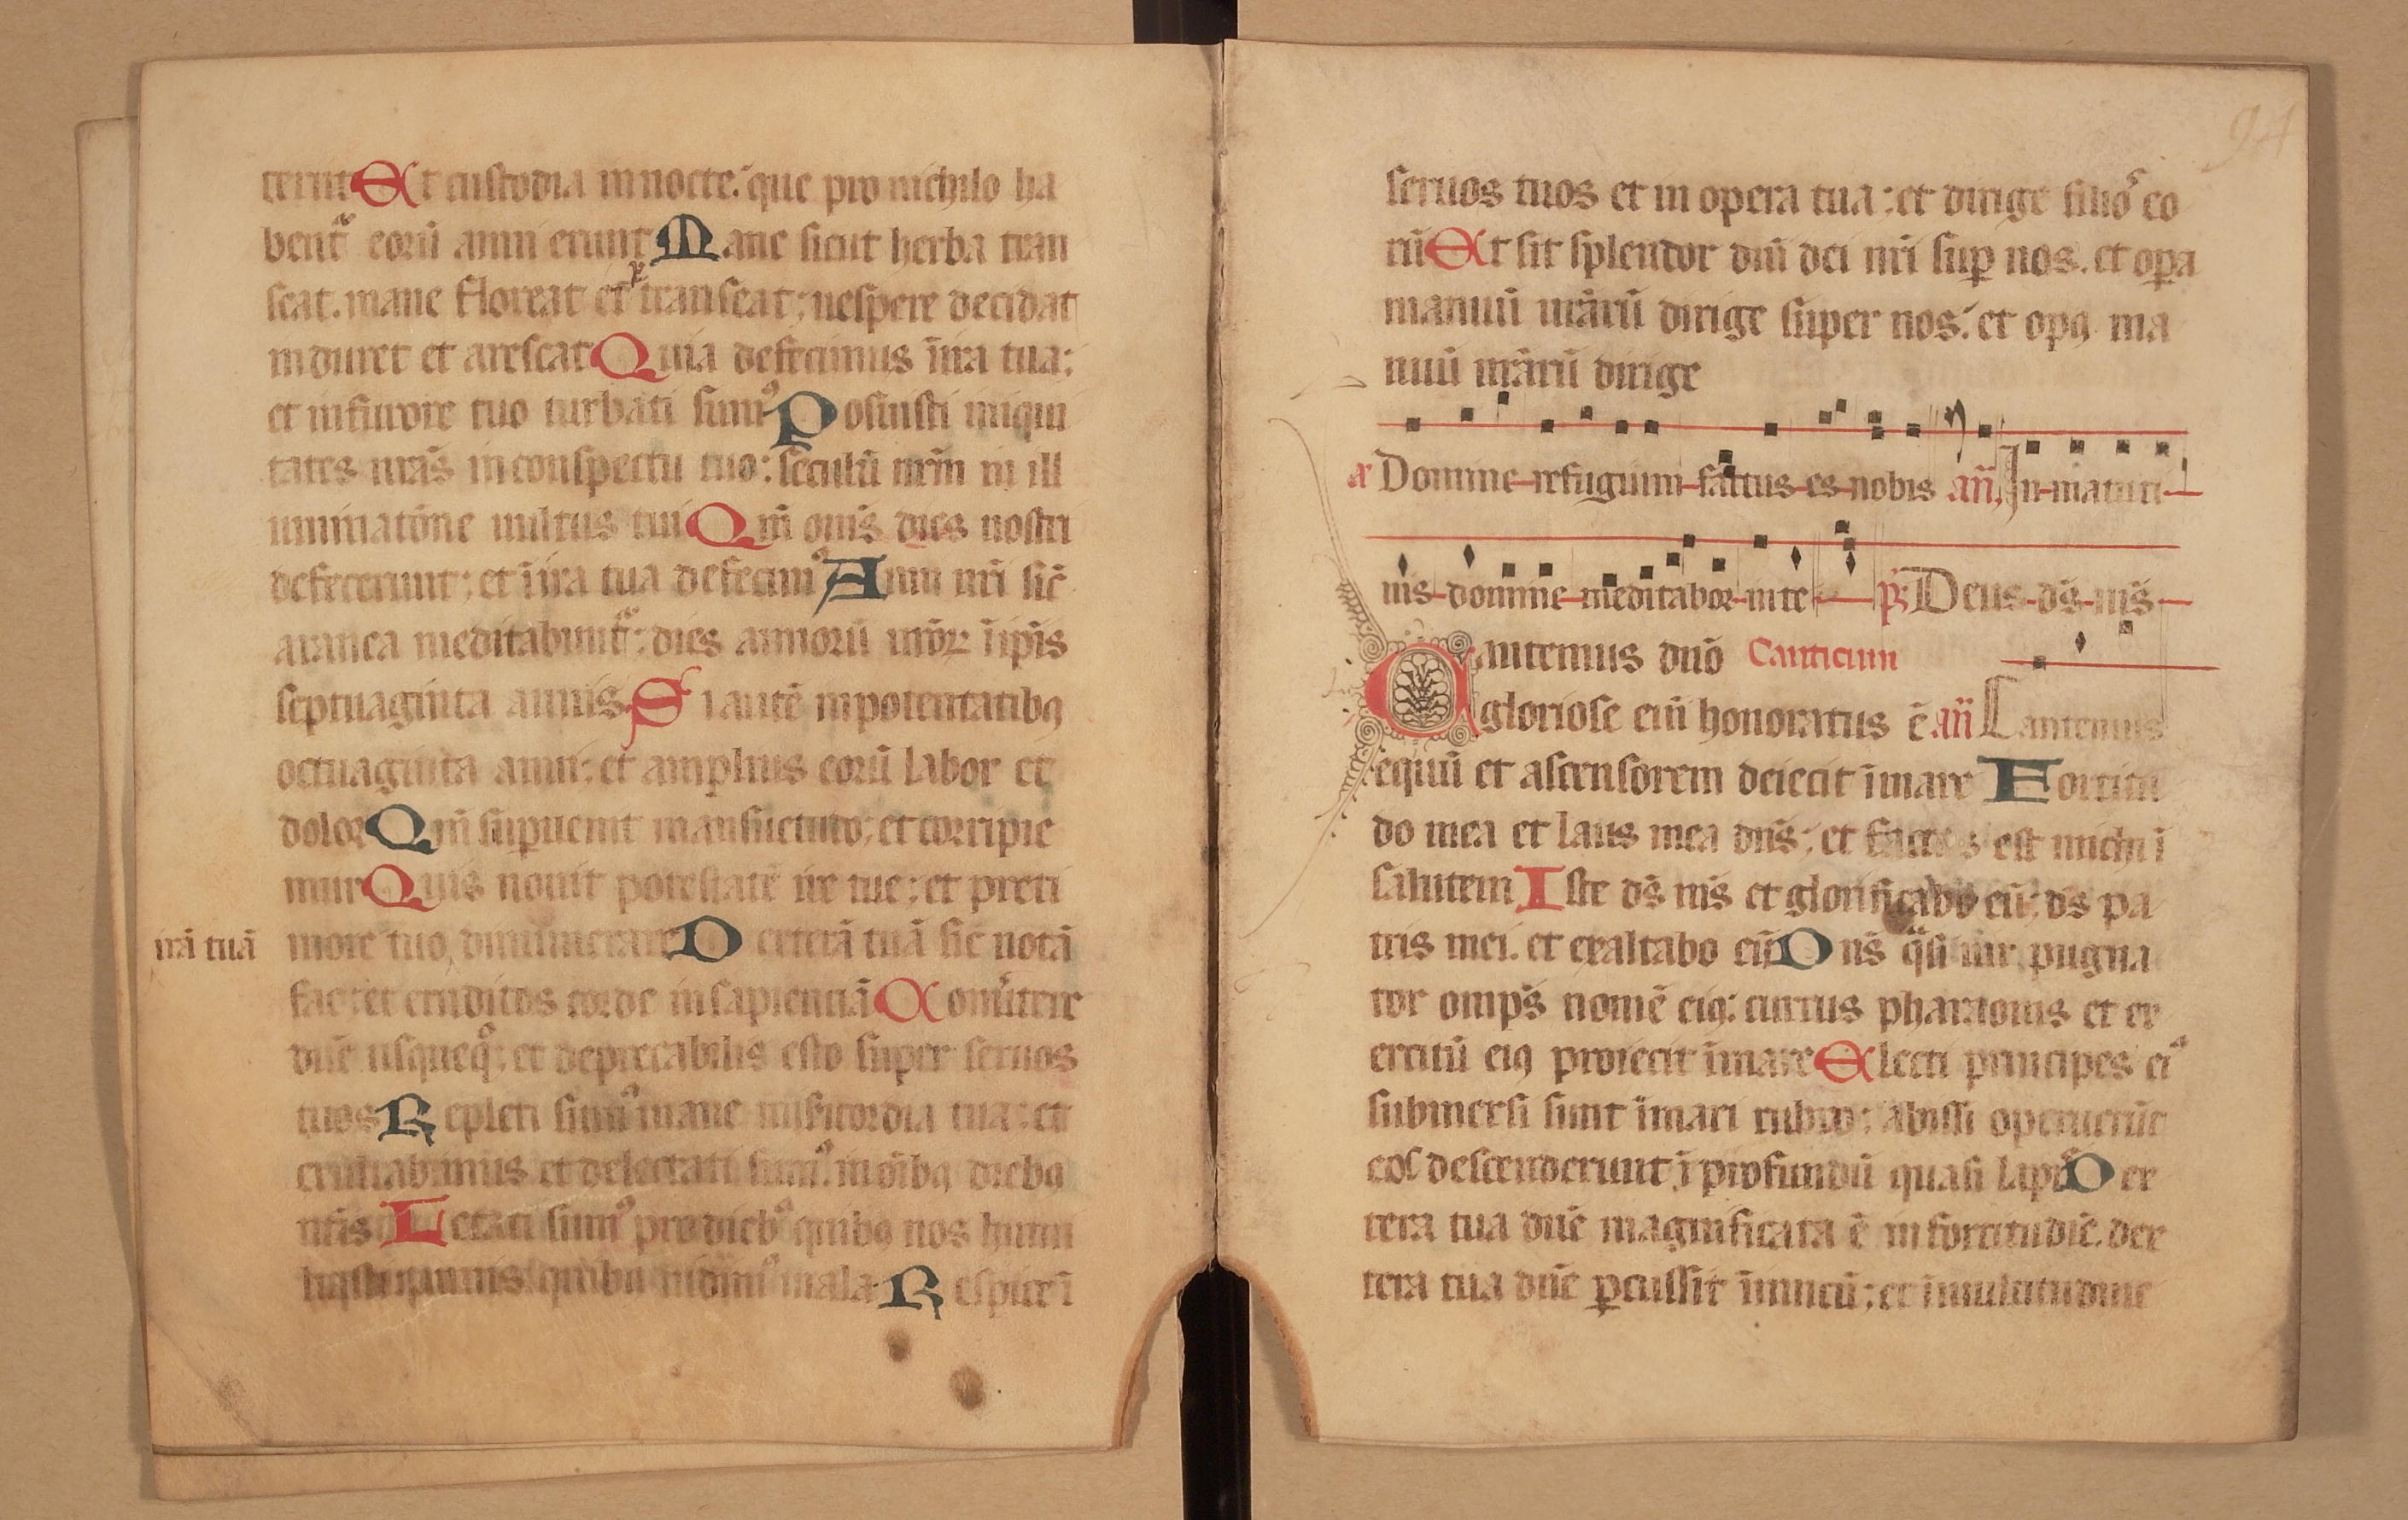 teriit Et custodia in nocte: que pro nichilo ha
bent᷑ eorū anni erunt Mane sicut herba tran
seat. mane floreat et transeat; uespere decidat
induret et arescat Quia defecimus ī ira tua:
et in furore tuo turbati sum᷒ Posuisti iniqui
tates nr̄as in conspectu tuo: seculū nr̄m in ill
uminatōne uultus tui Qm̄ om̄s dies nostri
defecerunt; et ī ira tua defecim᷒ Anni nr̄i sic̄
aranea meditabunt᷑: dies annorū nr̄oꝝ ī ip̄is
septuaginta annis. Si autē in potentatibꝫ
octuaginta anni: et amplius eorū labor et
dolor Qm̄ supuenit mansuetudo; et corripie
mur Quis nouit potestatē ire tue: et preti
irā tuā
more tuo dinumerare Dexterā tuā sic notā
fac: et eruditos corde in sapienciā Conūtere
dn̄e usqueq̊: et deprecabilis esto super seruos
tuos Repleti sum᷒ mane misīcordia tua: et
exultabimus et delectati sum᷒ in oīibꝫ diebꝫ
nr̄is Letati sum᷒ pro dieb᷒ quibꝫ nos humi
liasti annis quibꝫ uidim᷒ mala Respice ī
94
seruos tuos et in opera tua: et dirige filio᷒ eo
rū Et sit splendor dn̄i dei nr̄i suꝑ nos. et oꝑa
manuū nr̄arū dirige super nos: et opꝫ ma
nuū nr̄arū dirige
Domine refugium factus es nobis an̄ In matuti
nis domine meditabor in te p̄s Deus ds̄ ms̄
Cantemus dn̄o Canticum
gloriose enī honoratus ē an̄ Cantemus
equū et ascensorem deiecit ī mare Fortitu
do mea et laus mea dn̄s; et factus est michi ī
salutem Iste ds̄ ms̄ et glorificabo eū; ds̄ pa
tris mei. et exaltabo eū Dn̄s q̄si uir pugna
tor omps̄ nomē eiꝫ: currus pharaonis et ex
ercitū eiꝫ proiecit ī mare Electi principes ei᷒
submersi sunt ī mari rubro: abissi operuerūt
eos descenderunt ī profundū quasi lapis Dex
tera tua dn̄e magnificata ē in fortitudīe. dex
tera tua dn̄e ꝑcussit inimicū; et ī multitudine